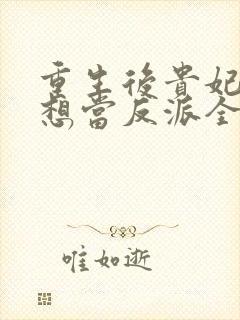 重生後貴妃
想當反派全
唯如逝